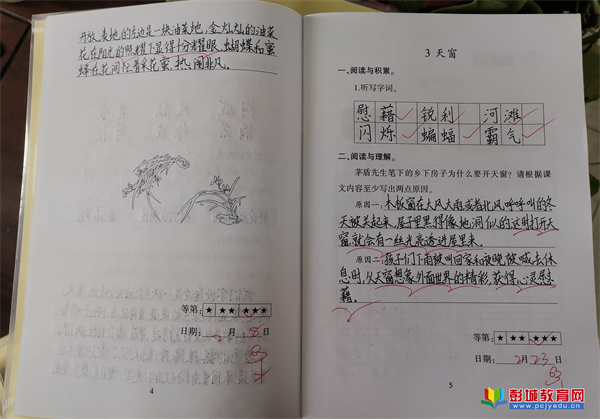 开放,麦地的左边是一块油菜地,金灿灿的油菜
花在阳光的照耀下显得十分耀眼,蝴蝶和蜜
蜂在花间忙着采花蜜,热闹非凡。
等第: ★ ★★ ★★★
日期: 2 月 8 日
4
3 天窗
一、阅读与积累。
1.听写字词。
慰藉 锐利 河滩
闪烁 蝙蝠 霸气
二、阅读与理解。
茅盾先生笔下的乡下房子为什么要开天窗?请根据课
文内容至少写出两点原因。
原因一:木板窗在大风大雨或者北风呼呼叫的冬
天被关起来,屋子里黑得像地洞似的,这时打开天
窗,就会有一丝光亮透进屋里来。
原因二:孩子们下雨被叫回家和夜晚被喊去休
息时,从天窗想象外面世界的精彩,获得心灵慰
藉。
等第: ★ ★★ ★★★
日期: 2 月 23 日
5
彭城教育网
www.pcjyedu.cn